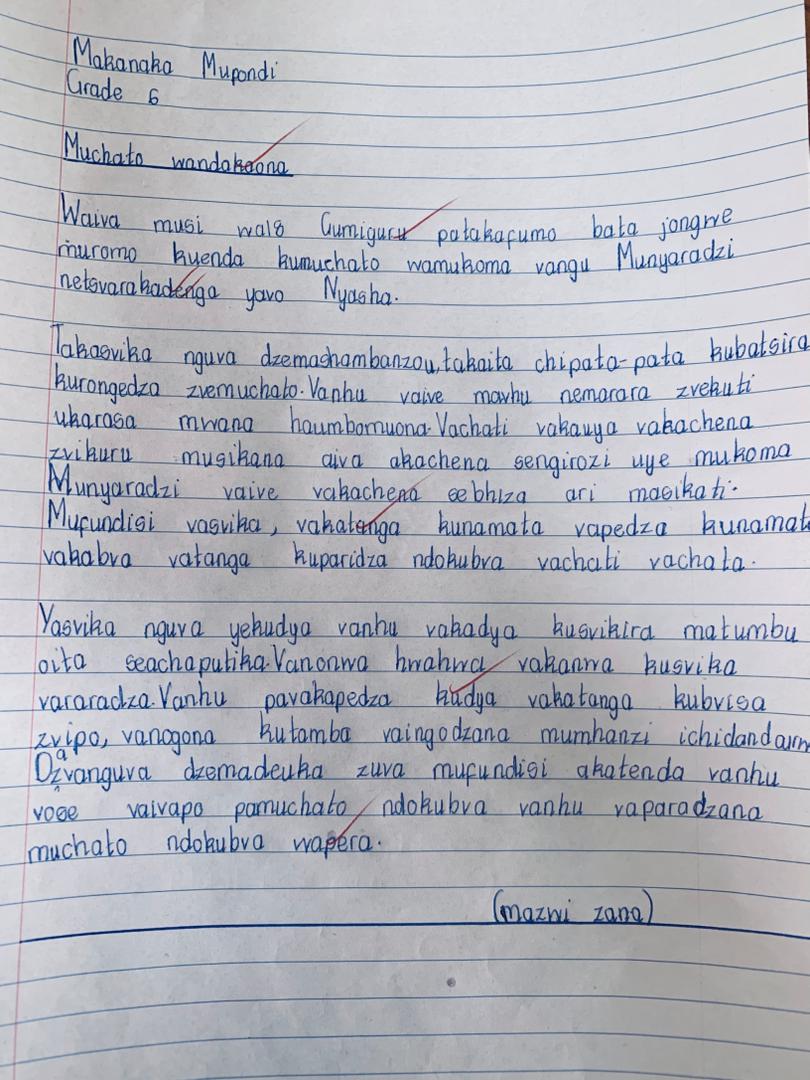 Makanaka Mupondi
Grade 6
Muchato wandakaona
Waiva musi wa18 Gumiguru patakafumo bata jongwe
muromo kuenda kumuchato wamukoma vangu Munyaradzi
netsvarakadenga yavo Nyasha.
Takasvika nguva dzemashambanzou, takaita chipata-pata kubatsira
kurongedza zvemuchato. Vanhu vaive mavhu nemarara zvekuti
ukarasa mwana haumbomuona. Vachati vakauya vakachena
zvikuru musikana aiva akachena sengirozi uye mukoma
Munyaradzi vaive vakachena sebhiza ari masikati.
Mufundisi vasvika, vakatenga kunamata vapedza kunamata
vakabva vatanga kuparidza ndokubva vachati vachata.
Yasvika nguva yekudya vanhu vakadya kusvikira matumbu
oita seachaputika. Vanonwa hwahwa vakanwa kusvika
vararadza. Vanhu pavakapedza kudya vakatanga kubvisa
zvipo, vanogona kutamba vaingodzana mumhanzi ichidandaura
Dzavanguva dzemadeuka zuva mufundisi akatenda vanhu
vose vaivapo pamuchato ndokubva vanhu vaparadzana
muchato ndokubva wapera.
(mazwi zana)